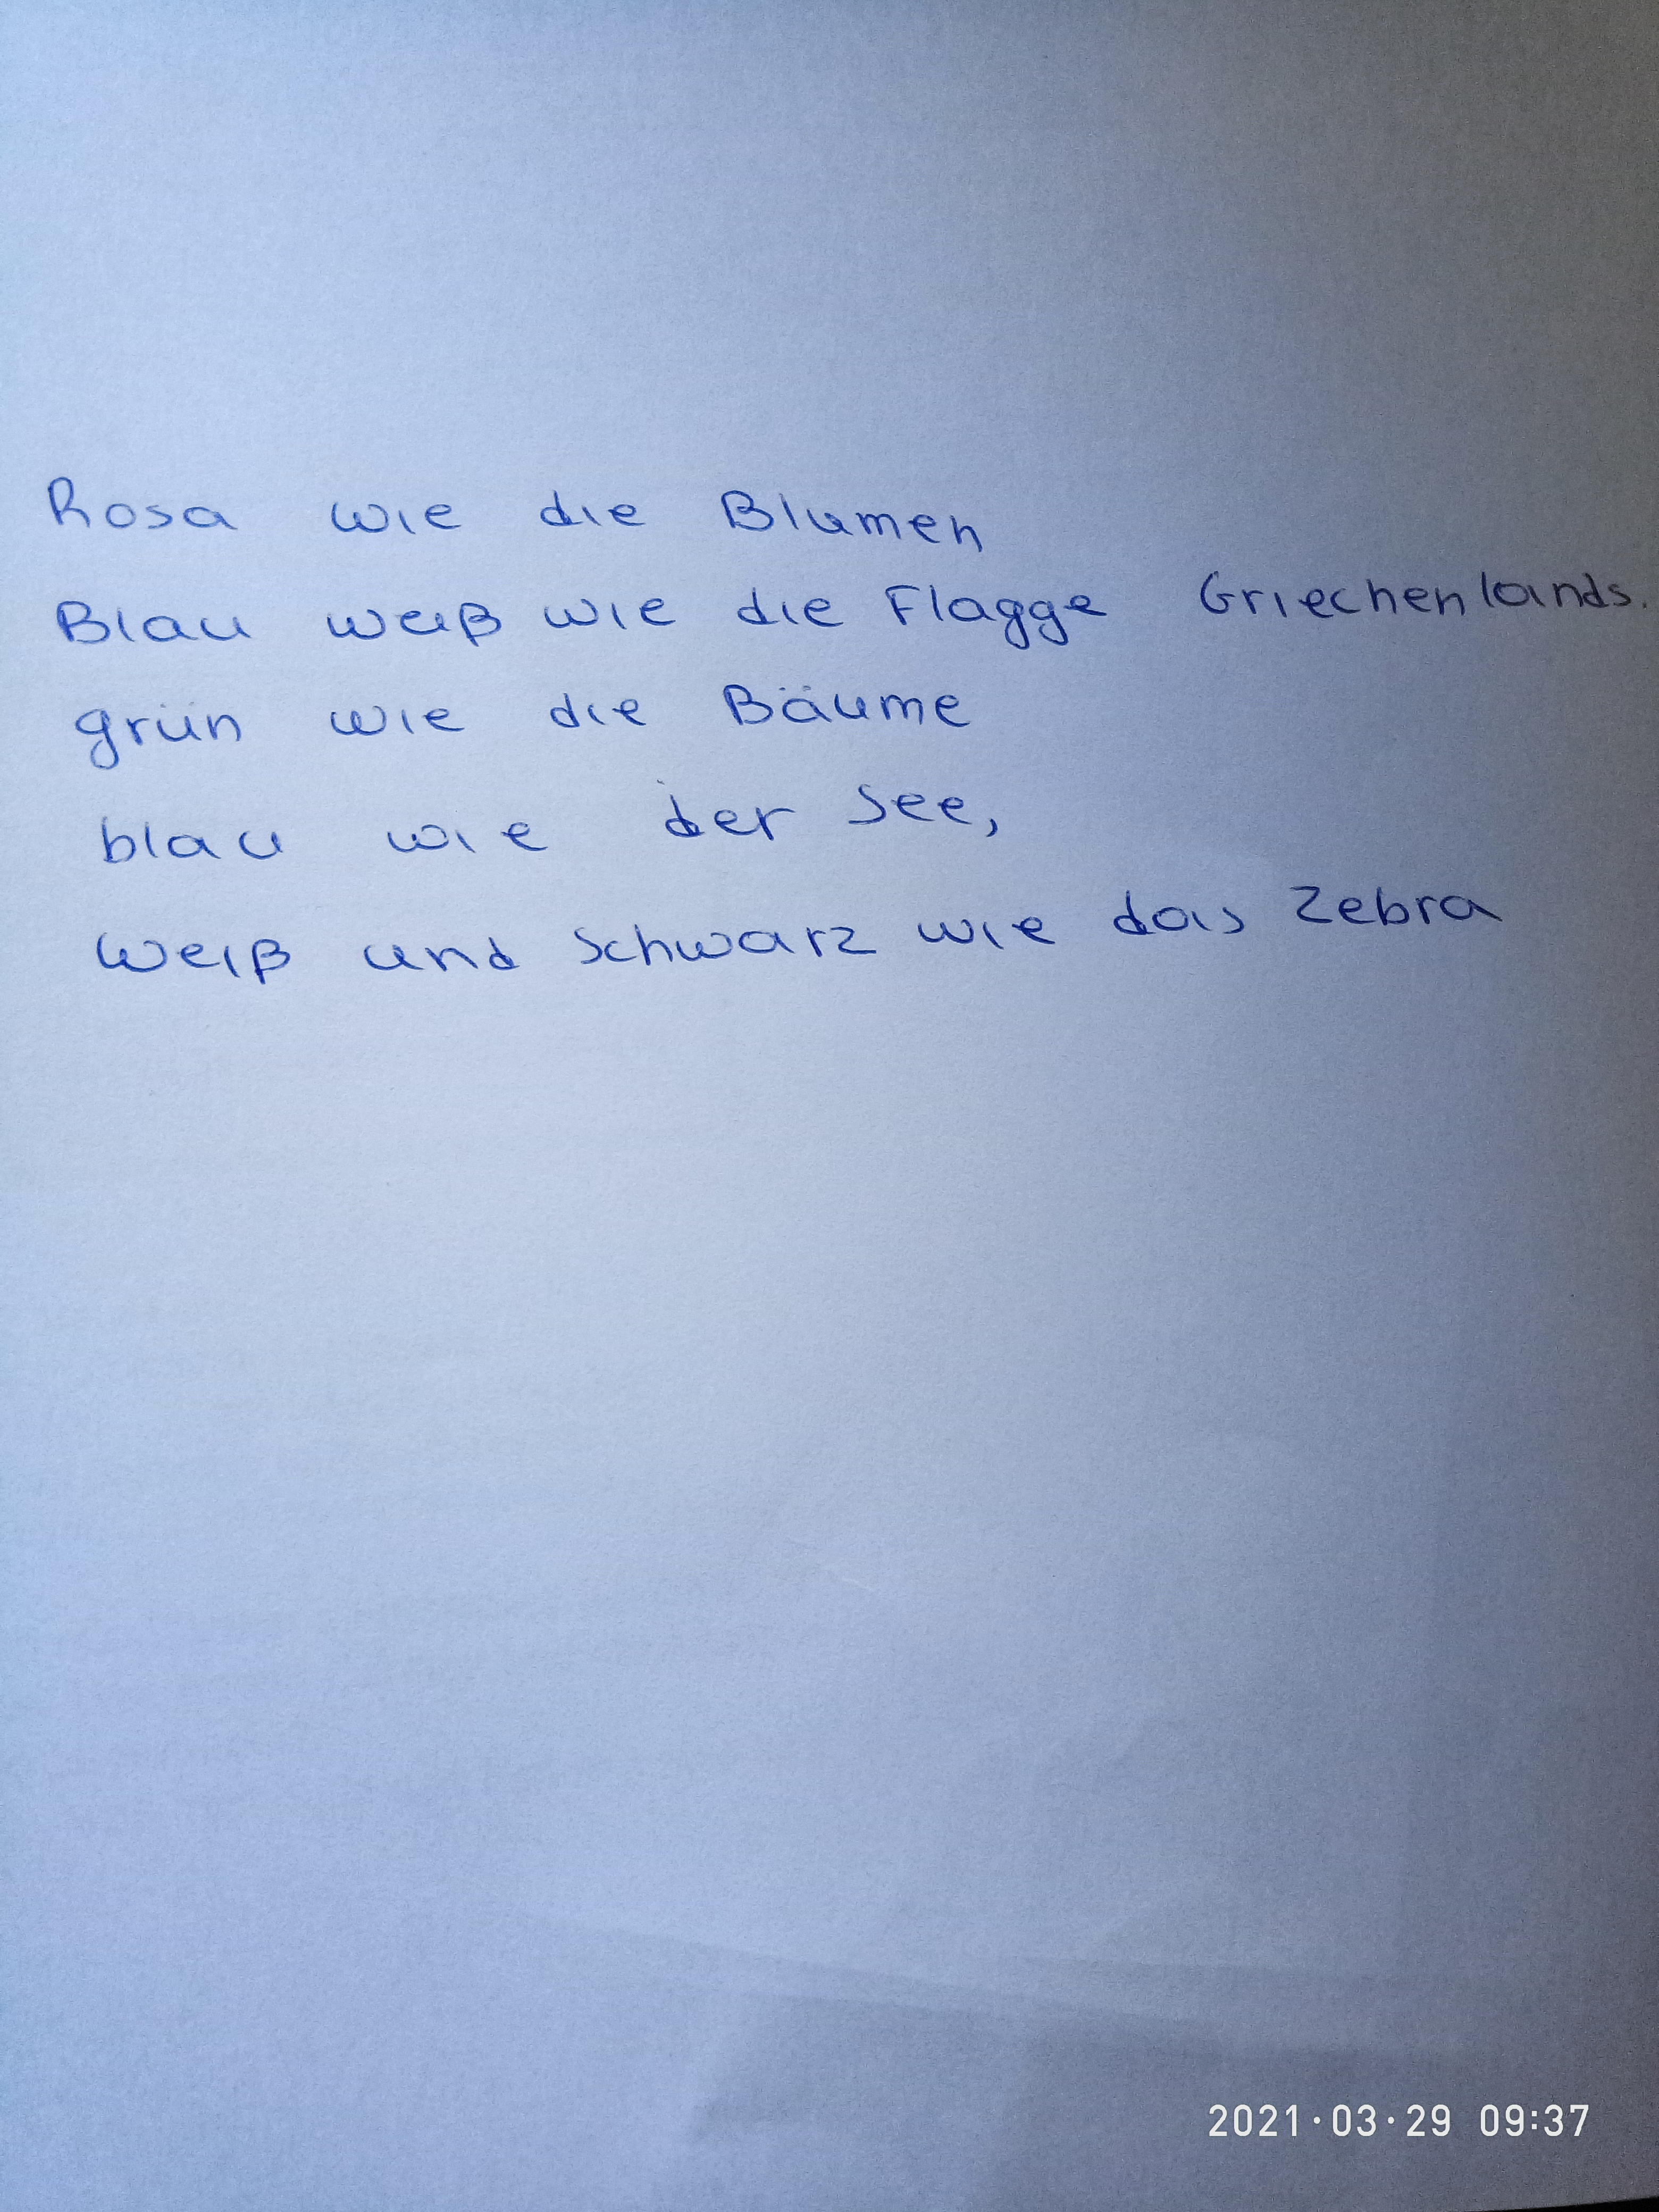 Rosa wie die Blumen
Blau weiß wie die Flagge Griechenlands.
grün wie die Bäume
blau wie der See,
Weiß und schwarz wie das Zebra
2021·03·29 09:37